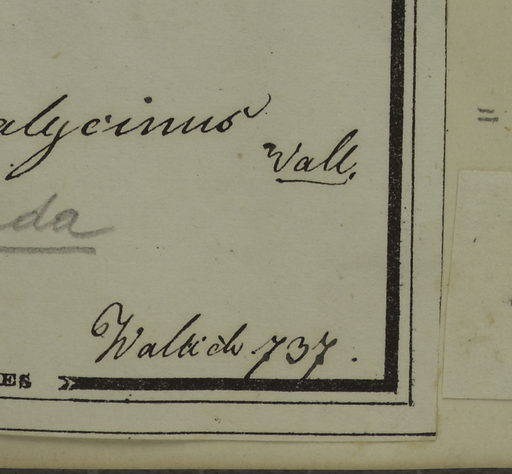 alycinus
Wall.
da
Wallich 737.
ES
=